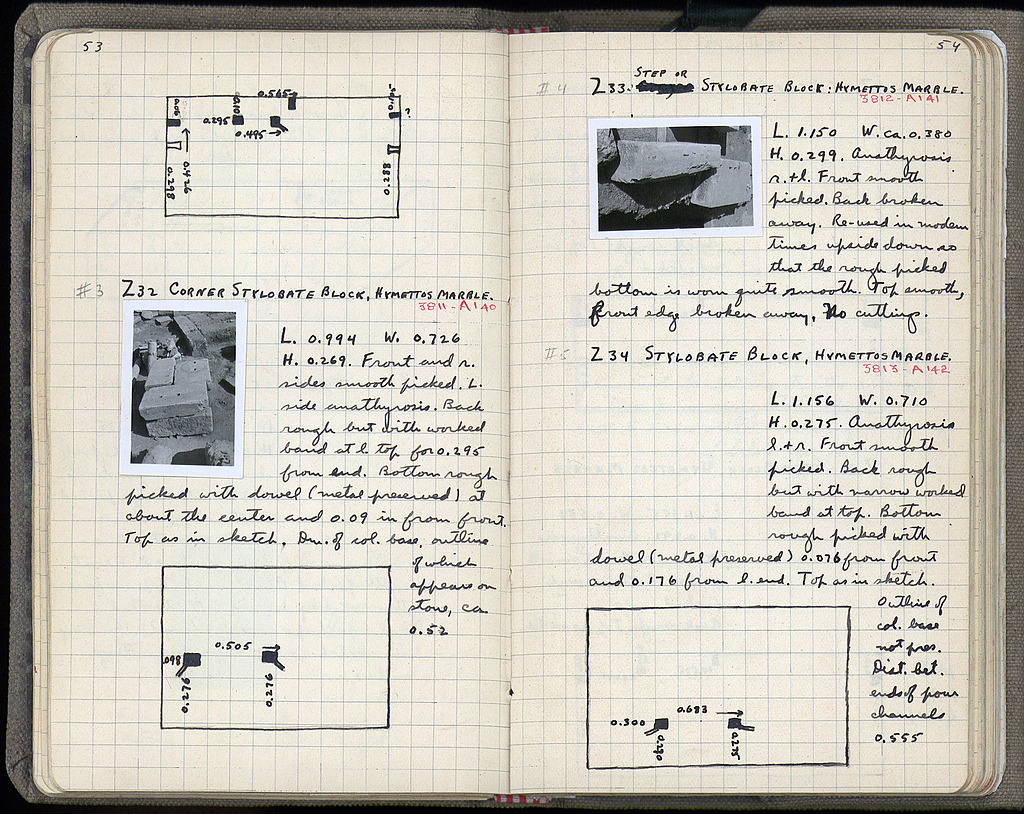 53
0.565
0.10
0.06
0.295
0.495
?
0.426
0.298
0.288
#3 Z32 CORNER STYLOBATE BLOCK, HYMETTOS MARBLE.
3811-A140
L. 0.994 W. 0.726
H. 0.269. Front and r.
sides smooth picked. L.
side anathyrosis. Back
rough but with worked
band at l. top for 0.295
from end. Bottom rough
picked with dowel (metal preserved) at
about the center and 0.09 in from front.
Top as in sketch. Dm. of col. base, outline
of which
appears on
stone, ca
0.52
0.505
.098
0.276
0.276
54
#4 Z33. STEP OR STYLOBATE BLOCK: HYMETTOS MARBLE.
3812-A141
L. 1.150 W. ca. 0.380
H. 0.299. Anathyrosis
r. + l. Front smooth
picked. Back broken
away. Re-used in modern
times upside down so
that the rough picked
bottom is worn quite smooth. Top smooth,
front edge broken away. No cuttings.
#5 Z34 STYLOBATE BLOCK, HYMETTOS MARBLE.
3813-A142
L. 1.156 W. 0.710
H. 0.275. Anathyrosis
l. + r. Front smooth
picked. Back rough
but with narrow worked
band at top. Bottom
rough picked with
dowel (metal preserved) 0.076 from front
and 0.176 from l. end. Top as in sketch.
Outline of
col. base
not pres.
Dist. bet.
ends of pour
channels
0.555
0.683
0.300
0.290
0.275